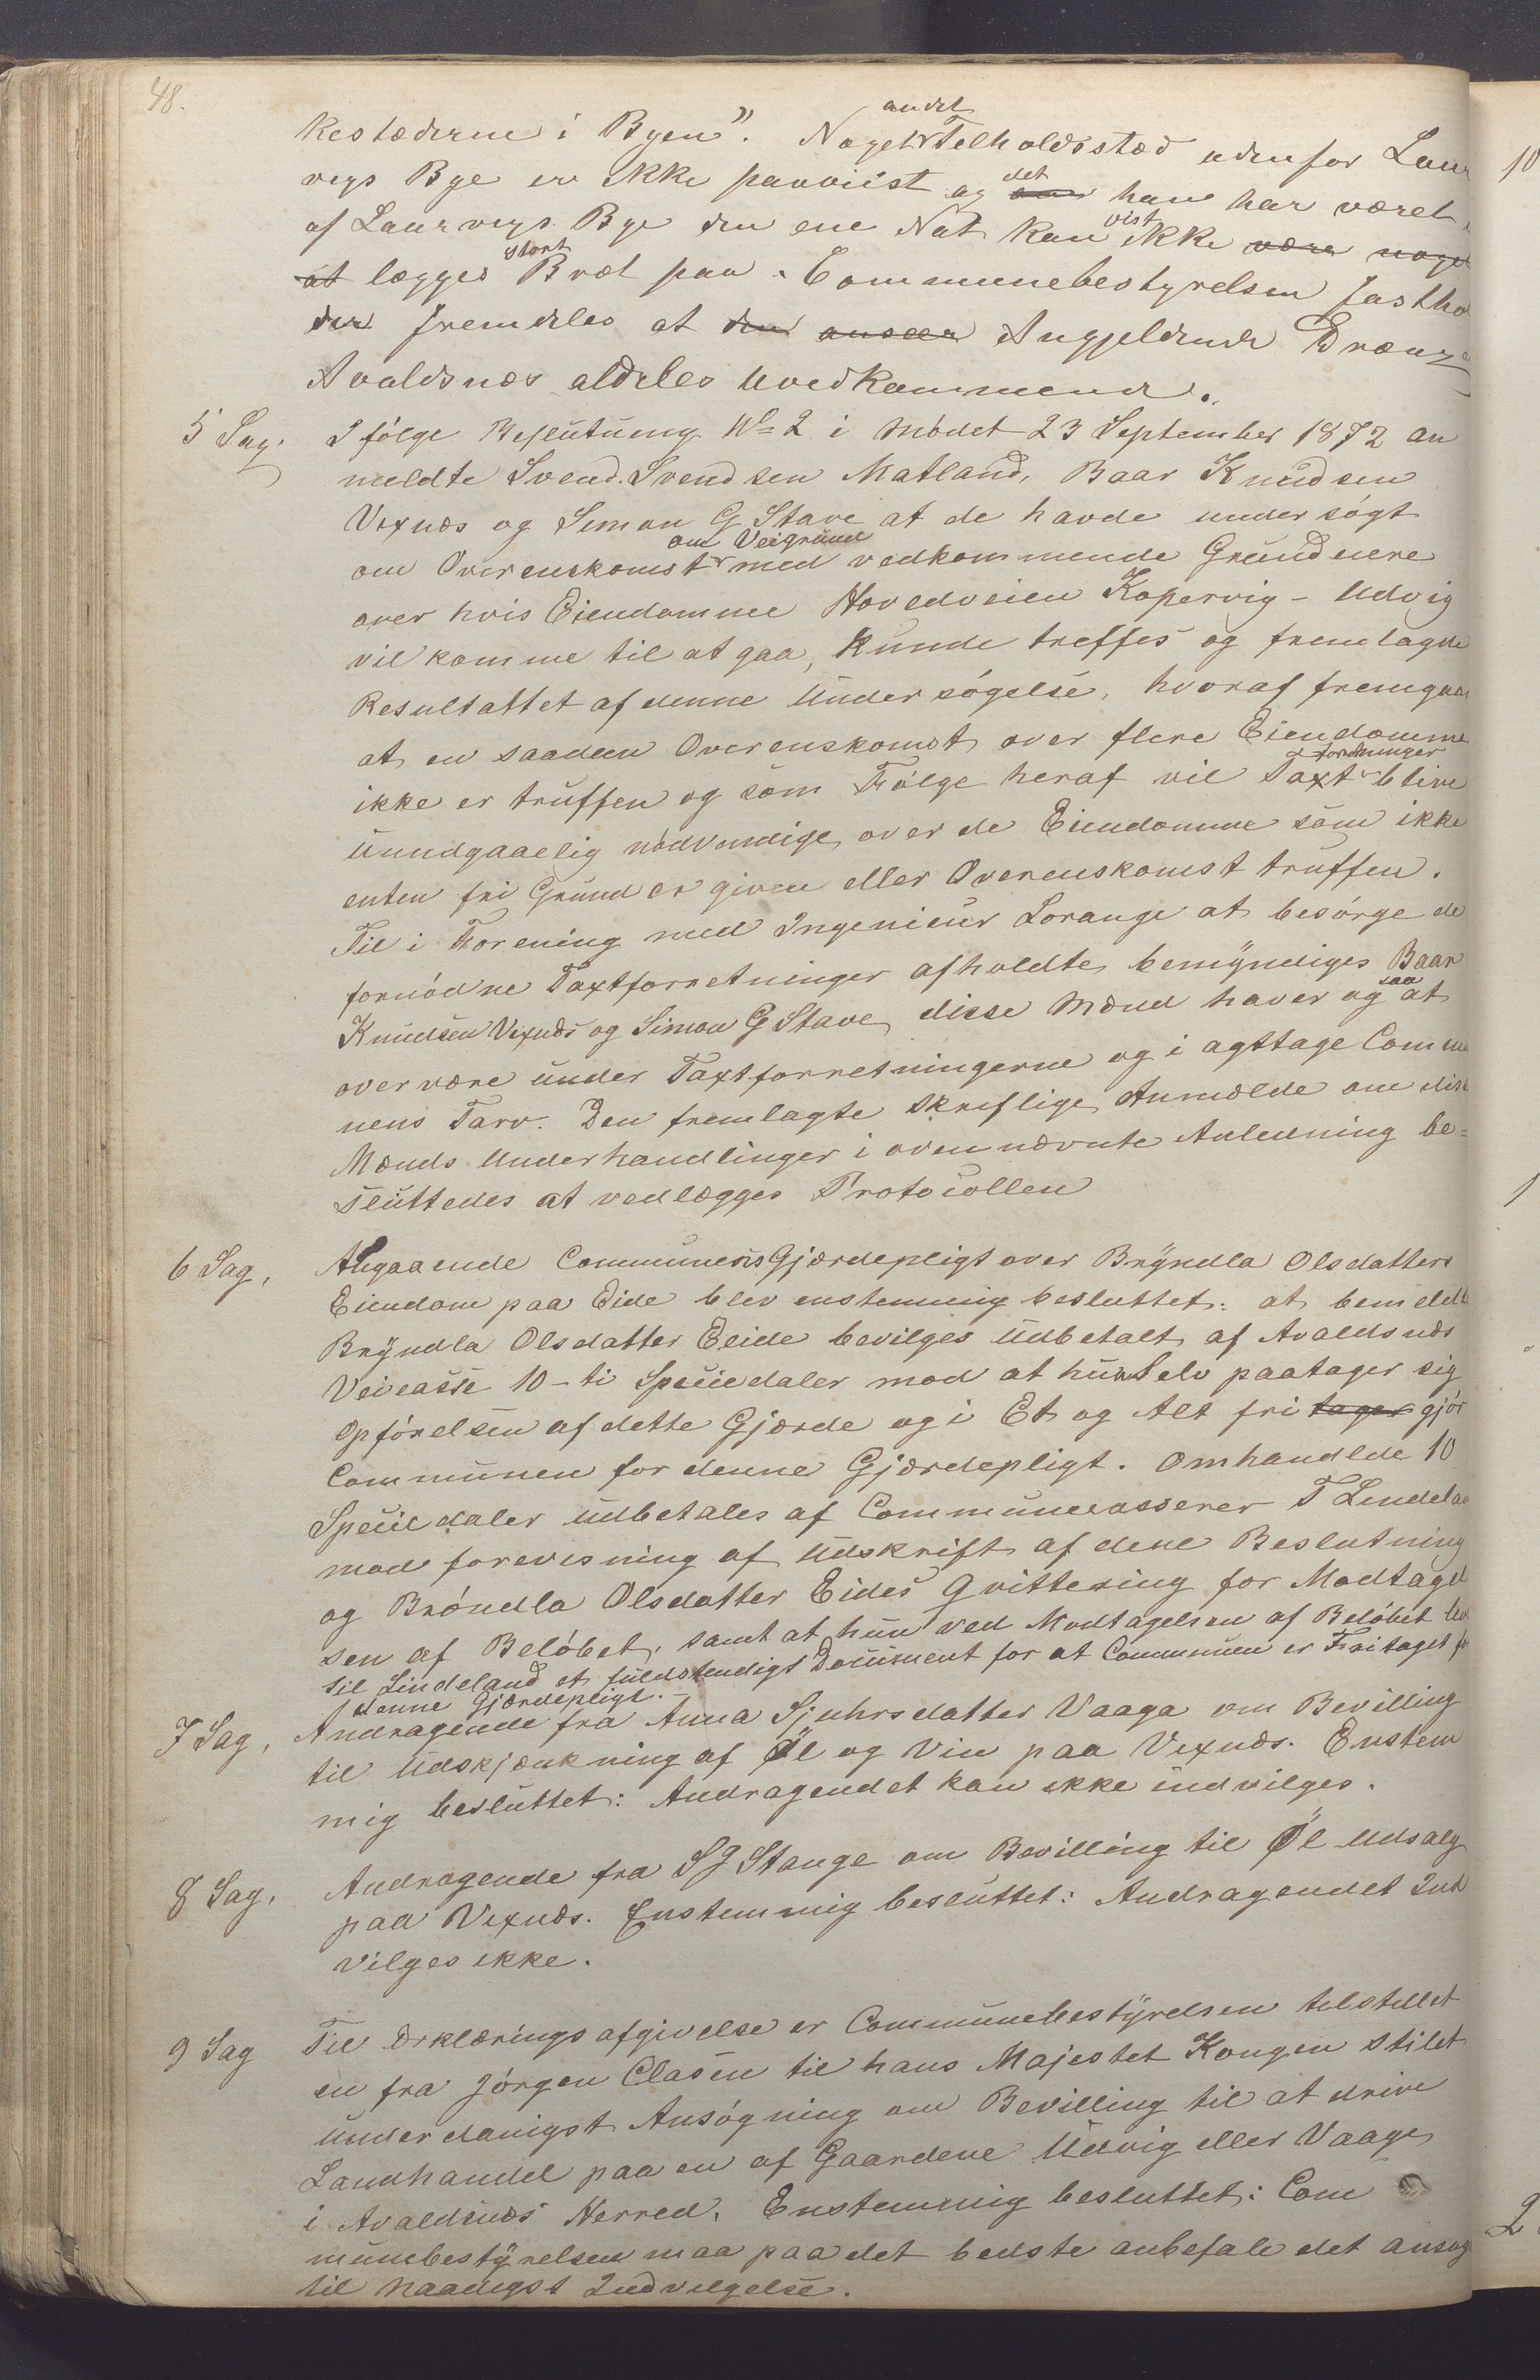 48.
andet
kestæderne i Byen". Noget Tilholdssted udenfor Laur
vigs Bye er ikke paaviist og det han har været
af Laurvigs Bye den ene Nat kan vist ikke være noget
at lægges stort Vræt paa. Communebestyrelsen fastho
der fremdeles at den anseer Angjeldende
Avaldsnæs aldeles uvedkommende.
5 Sag. Ifølge Beslutning No 2 i Mødet 23 September 1872 an
meldte Svend Svendsen Matland, Baar Knudsen
Vexnæs og Simon G Stave at de havde undersøgt
om Veigrund
om Overenskomst med vedkommende Grundeiere
over hvis Eiendomme Hovedveien Kopervig - Udvig
vil komme til at gaa, kunde treffes og fremlagde
Resultattet af denne Undersøgelse, hvoraf fremgaar
at en saadan Overenskomst over flere Eiendomme
forretninger
ikke er truffen og som Følge heraf vil Taxt blive
uundgaaelig nødvendige over de Eiendomme som ikke
enten fri Grund er given eller Overenskomst truffen.
Til i Forening med Ingenieur Lorange at besørge de
fornødne Taxtforretninger afholdte, bemyndiges Baar
Knudsen Vexnæs og Simon G Stave, disse Mænd haver ogsaa at
overvære under Taxtforretningerne og i agttage Commu
nens Tarv. Den fremlagte skriflige Anmelde om disse
Mænds Underhandlinger i ovennævnte Anledning be=
sluttedes at vedlægges Protocollen
6 Sag, Angaaende Communens Gjærdepligt over Bryndla Olsdatters
Eiendom paa Eide blev enstemmig besluttet: at bemeldte
Bryndla Olsdatter Eide bevilges Udbetalt af Avaldsnæs
Veicasse 10 - ti Speciedaler mod at hun selv paatager sig
Opførelsen af dette Gjærde og i Et og Alt fri tager gjør
Communen for denne Gjærdepligt. Omhandlde 10
Speciedaler udbetales af Communecasserer T Lindeland
mod forevisning af Udskrift af dene Beslutning
og Brøndla Olsdatter Eides Qvittering for Modtagel
sen af Beløbet, samt at hun ved Modtagelsen af Beløbet lev
til Lindeland et fuldstendigt Document for at Communen er Fritaget for
denne Gjærdepligt.
7 Sag, Andragende fra Anna Sjuhrsdatter Vaaga om Bevilling
til Udskjænkning af Øl og Vin paa Vexnæs. Enstem
mig besluttet: Andragendet kan ikke indvilges.
8 Sag, Andragende fra S G Stange om Bevilling til Øl Udsalg
paa Vexnæs. Enstemmig besluttet: Andragendet Ind
vilges ikke.
9 Sag Til Erklærings afgivelse er Communebestyrelsen tilstillet
en fra Jørgen Clasen til hans Majestet Kongen stilet
underdanigst Ansøgning om Bevilling til at drive
Landhandel paa en af Gaardene Udvig eller Vaage
i Avaldsnæs Herred. Enstemmig besluttet: Com
munebestyrelsen maa paa det bedste anbefale det ansøg
til naadigst Indvilgelse.